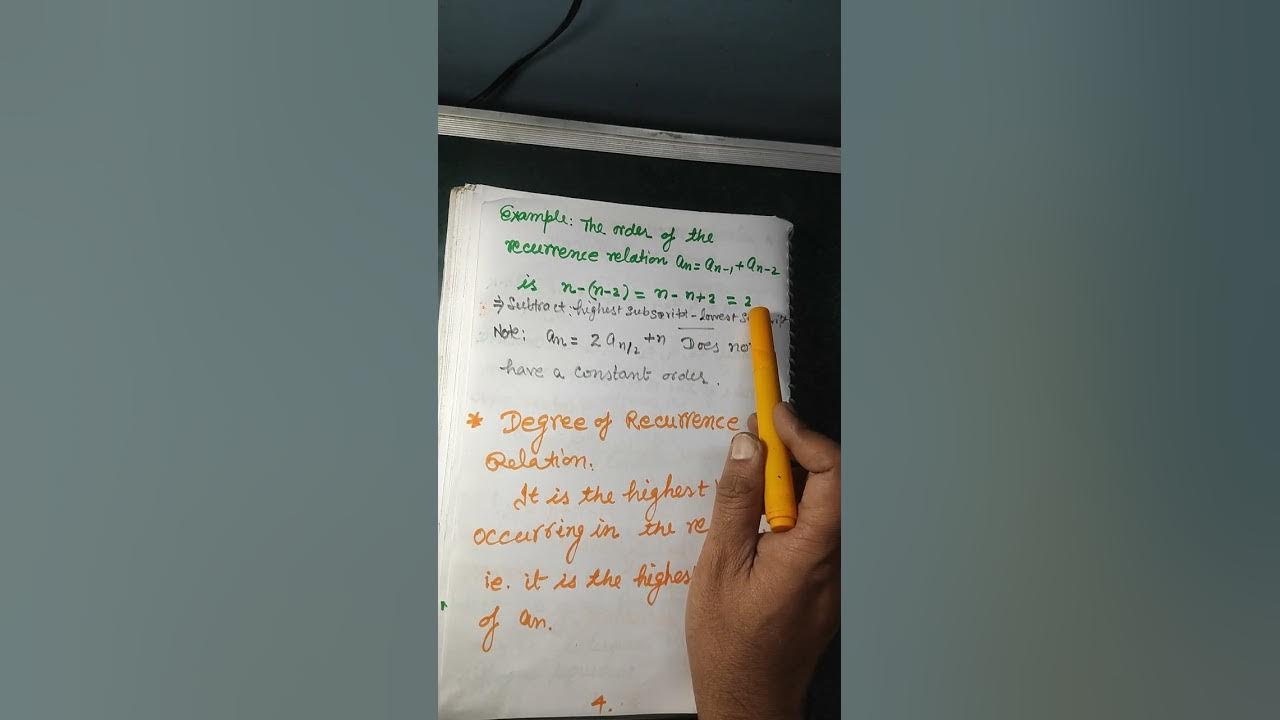 Example: The order of the
recurrence relation aₙ = aₙ₋₁ + aₙ₋₂
is n-(n-2) = n-n+2 = 2
⇒ Subtract: highest subscript - lowest
Note: aₙ = 2 aₙ/₂ + n Does
have a constant order.
* Degree of Recurrence
Relation.
It is the highest
occurring in the
ie. it is the
of aₙ.
4.